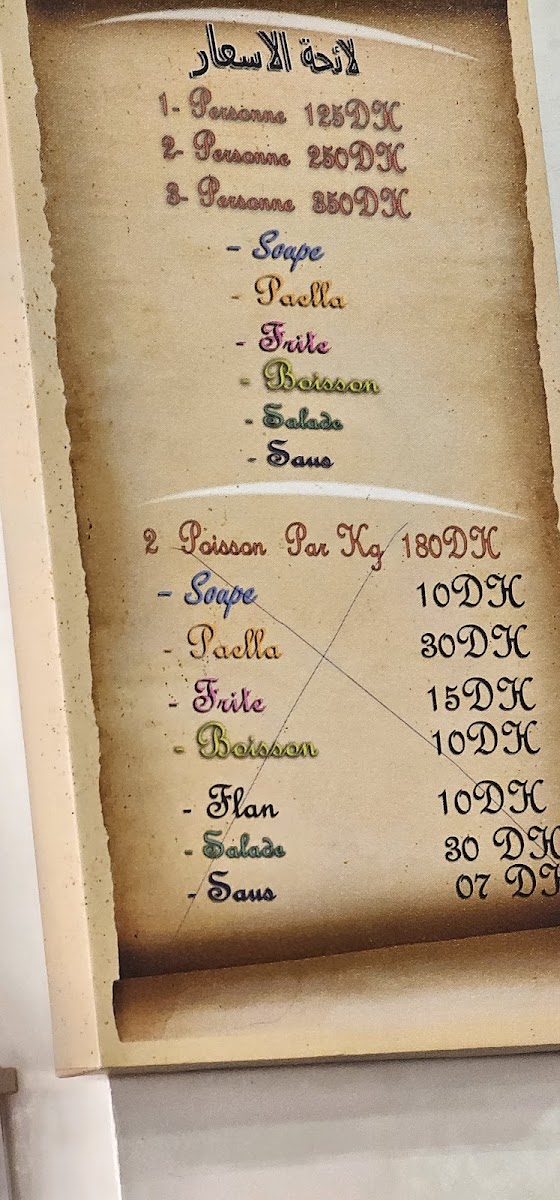 لائحة الاسعار
1- Personne 125DH
2- Personne 250DH
3- Personne 350DH
- Soupe
- Paella
- Frite
- Boisson
- Salade
- Saus
2 Poisson Par Kg 180DH
- Soupe 10DH
- Paella 30DH
- Frite 15DH
- Boisson 10DH
- Flan 10DH
- Salade 30 DH
- Saus 07 DH